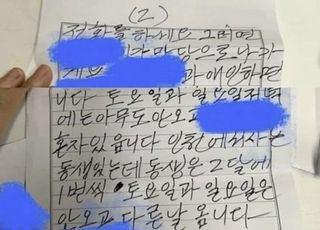 (2)
전화를하세요 그러면
마당으로 나가
과 애인하면
니다 토요일과 일요일저녁
에는아무도안오고
혼자있읍니다 인천에 사는
동생있는데 동생은 2달에
1번씩 토요일과 일요일은
안오고 다른날 옵니다